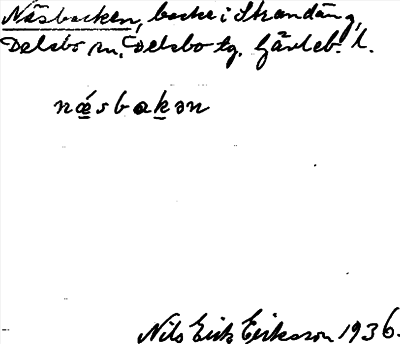 Näsbacken, backe i Skandäng,
Delsbo sn. Delsbo tg. Gävleb. l.
nǽ̱sbaḵən
Nils Erik Eriksson 1936.